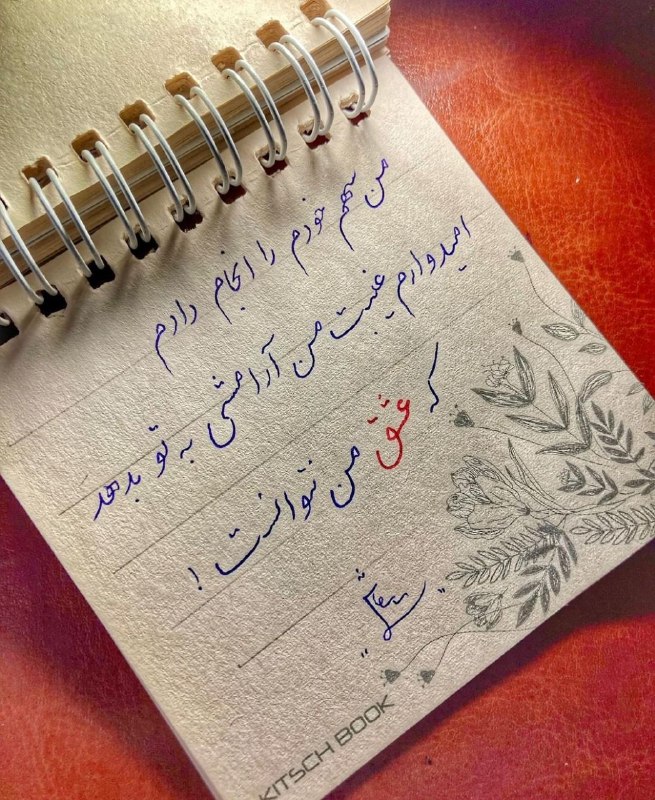 من سهم خودم را انجام دادم
امیدوارم غیبت من آرامشی به تو بدهد
که عشق من نتوانست !
KITSCH BOOK